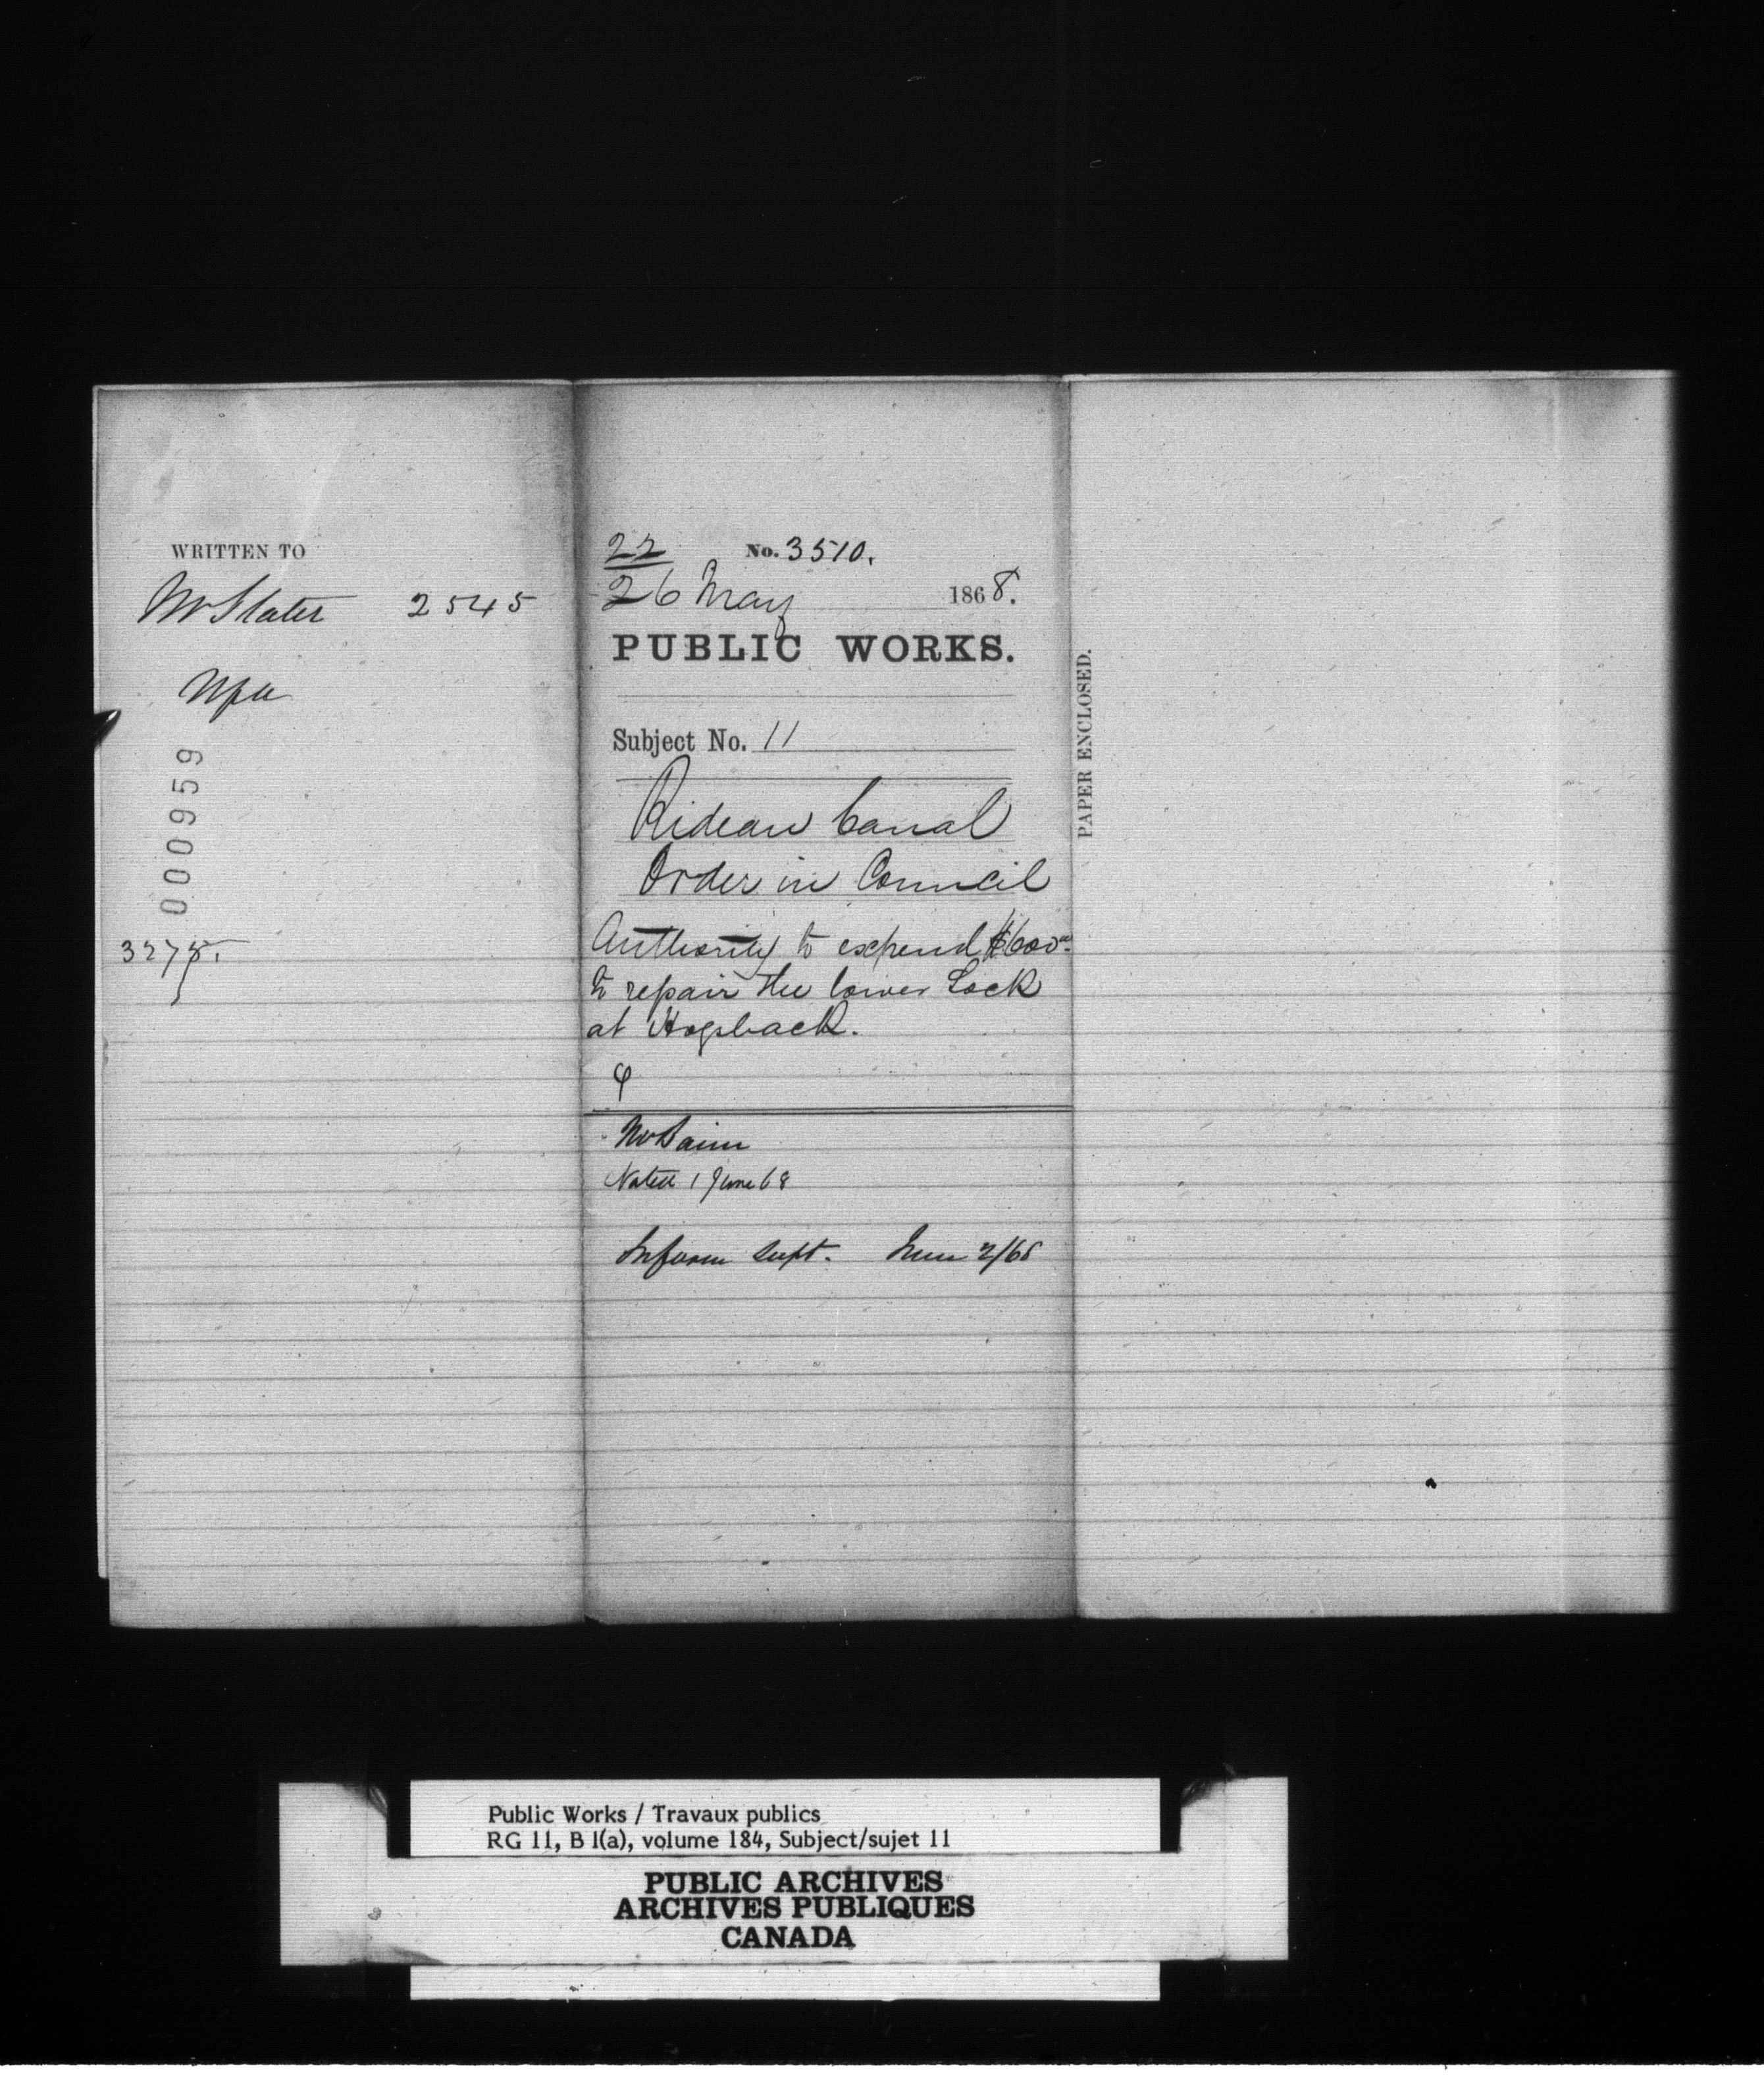 WRITTEN TO
Mr Slater 2545
000959
22
No. 3510.
26 May 1868.
PUBLIC WORKS.
Subject No. 11
Rideau Canal
Order in Council
Authority to expend $600
to repair the lower Lock
at Hogsback.
Noted 1 June 68
Inform Supt. June 2/68
PAPER ENCLOSED.
Public Works / Travaux publics
RG 11, B 1(a), volume 184, Subject/sujet 11
PUBLIC ARCHIVES
ARCHIVES PUBLIQUES
CANADA